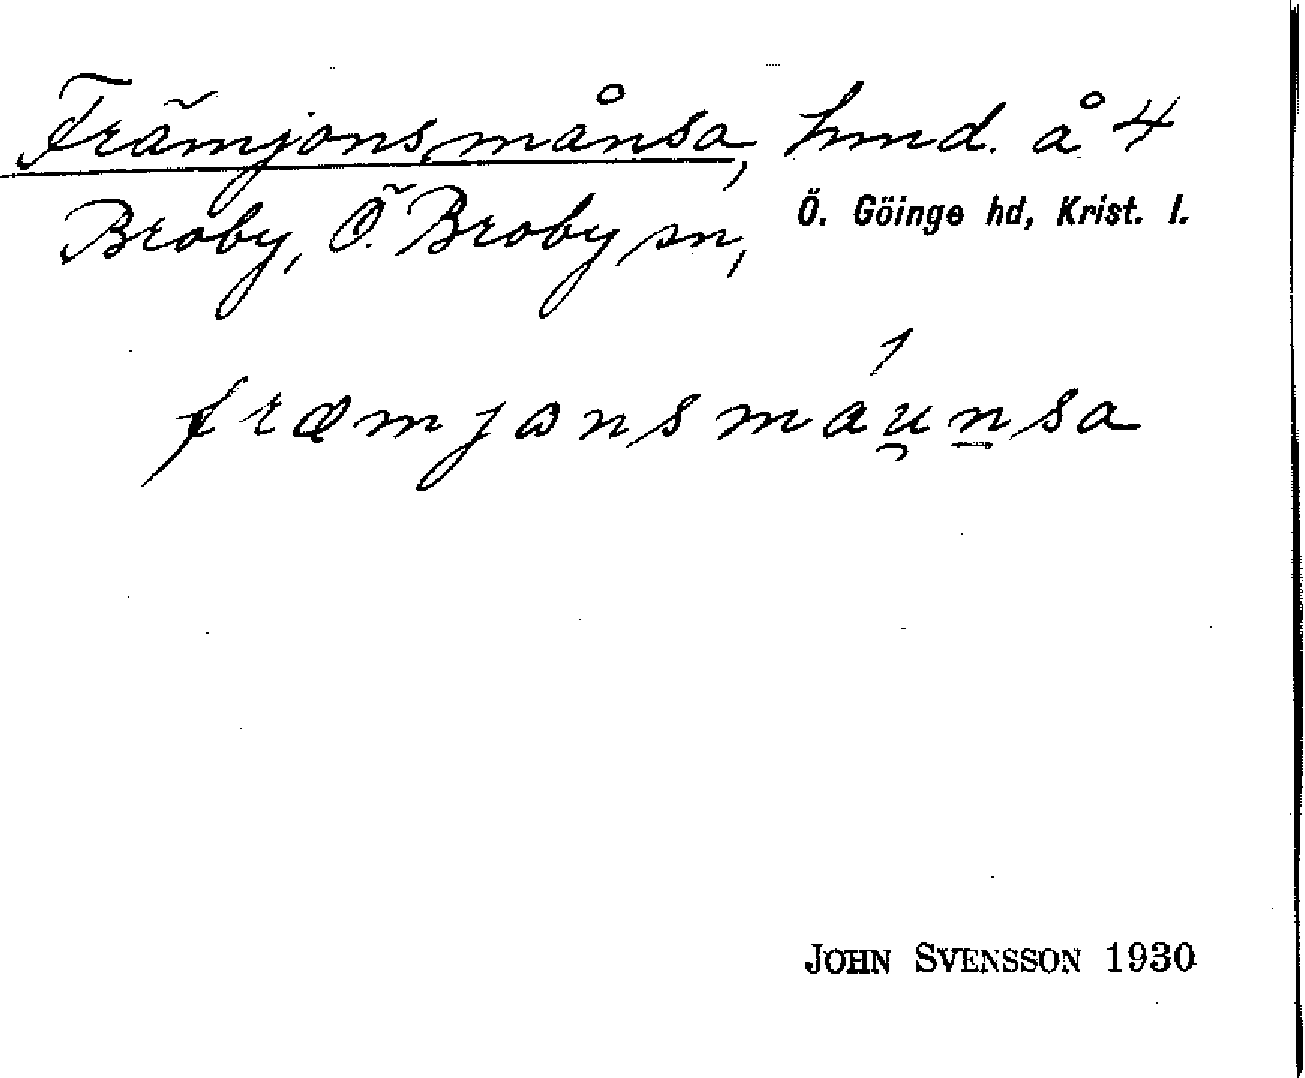 Främjonsmånsa, hmd. å 4
Broby, Ö. Broby sn, Ö. Göinge hd, Krist. l.
fræmjɷnsmáu̯n̲sa
JOHN SVENSSON 1930